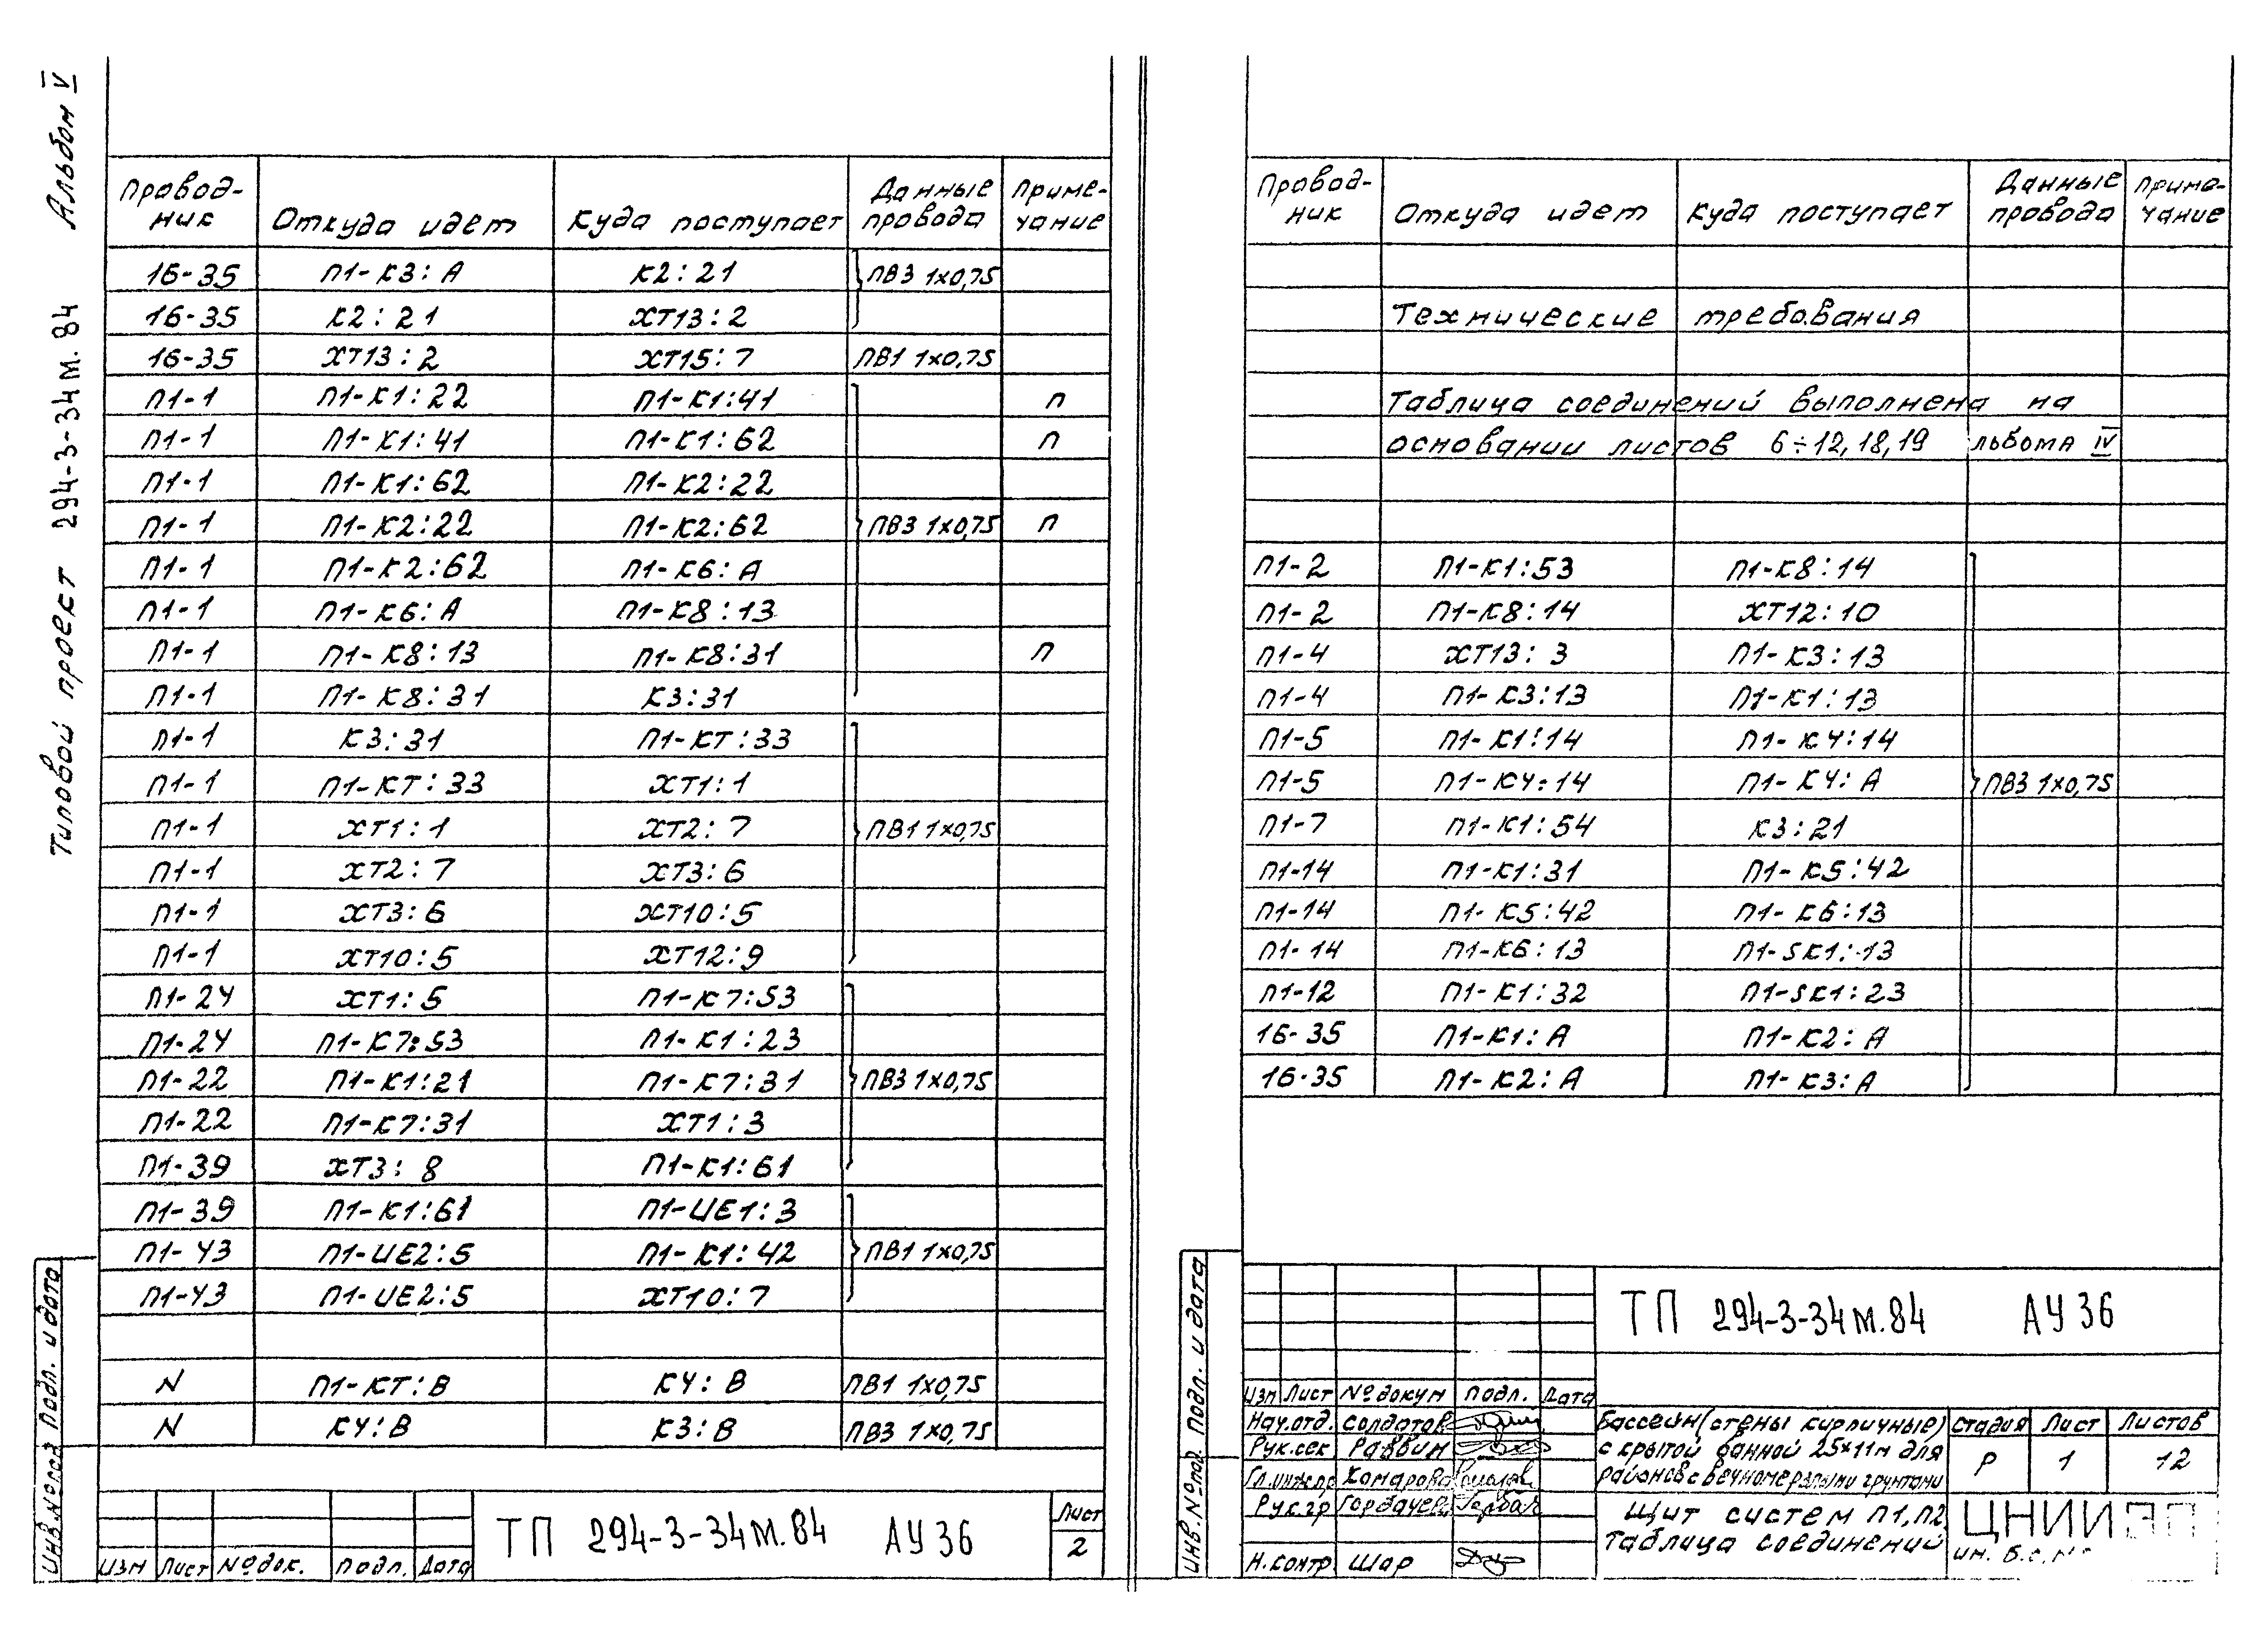 Альбом IV
Типовой проект 294-3-34м.84
Провод-ник Откуда идет Куда поступает Данные провода Приме-чание
16-35 П1-К3:А К2:21 ПВ3 1х0,75
16-35 К2:21 ХТ13:2
16-35 ХТ13:2 ХТ15:7 ПВ1 1х0,75
П1-1 П1-К1:22 П1-К1:41 п
П1-1 П1-К1:41 П1-К1:62 п
П1-1 П1-К1:62 П1-К2:22
П1-1 П1-К2:22 П1-К2:62 ПВ3 1х0,75 п
П1-1 П1-К2:62 П1-К6:А
П1-1 П1-К6:А П1-К8:13
П1-1 П1-К8:13 П1-К8:31 п
П1-1 П1-К8:31 К3:31
П1-1 К3:31 П1-КТ:33
П1-1 П1-КТ:33 ХТ1:1
П1-1 ХТ1:1 ХТ2:7 ПВ1 1х0,75
П1-1 ХТ2:7 ХТ3:6
П1-1 ХТ3:6 ХТ10:5
П1-1 ХТ10:5 ХТ12:9
П1-24 ХТ1:5 П1-К7:53
П1-24 П1-К7:53 П1-К1:23
П1-22 П1-К1:21 П1-К7:31 ПВ3 1х0,75
П1-22 П1-К7:31 ХТ1:3
П1-39 ХТ3:8 П1-К1:61
П1-39 П1-К1:61 П1-UE1:3
П1-43 П1-UE2:5 П1-К1:42 ПВ1 1х0,75
П1-43 П1-UE2:5 ХТ10:7
N П1-КТ:В К4:В ПВ1 1х0,75
N К4:В К3:В ПВ3 1х0,75
Инв.№ подл Подп. и дата
Изм Лист № док. Подп. Дата
ТП 294-3-34м.84 АУ36
Лист
2
Провод-ник Откуда идет Куда поступает Данные провода Приме-чание
Технические требования
Таблица соединений выполнена на
основании листов 6÷12,18,19 льбома IV
П1-2 П1-К1:53 П1-К8:14
П1-2 П1-К8:14 ХТ12:10
П1-4 ХТ13:3 П1-К3:13
П1-4 П1-К3:13 П1-К1:13
П1-5 П1-К1:14 П1-К4:14
П1-5 П1-К4:14 П1-К4:А ПВ3 1х0,75
П1-7 П1-К1:54 К3:21
П1-14 П1-К1:31 П1-К5:42
П1-14 П1-К5:42 П1-К6:13
П1-14 П1-К6:13 П1-SК1:13
П1-12 П1-К1:32 П1-SК1:23
16-35 П1-К1:А П1-К2:А
16-35 П1-К2:А П1-К3:А
Инв.№под. Подп. и дата
ТП 294-3-34м.84 АУ36
Изм Лист № докум Подп. Дата
Нач.отд. Солдатов
Рук.сек Раввин
Гл.инж.пр Комарова
Рук.гр Горбачев
Н.контр. Шар
Бассейн (стены кирпичные)
с крытой ванной 25×11м для
районов с вечномерзлыми грунтами
Стадия Лист Листов
Р 1 12
Щит систем П1,П2
Таблица соединений
ЦНИИЭП